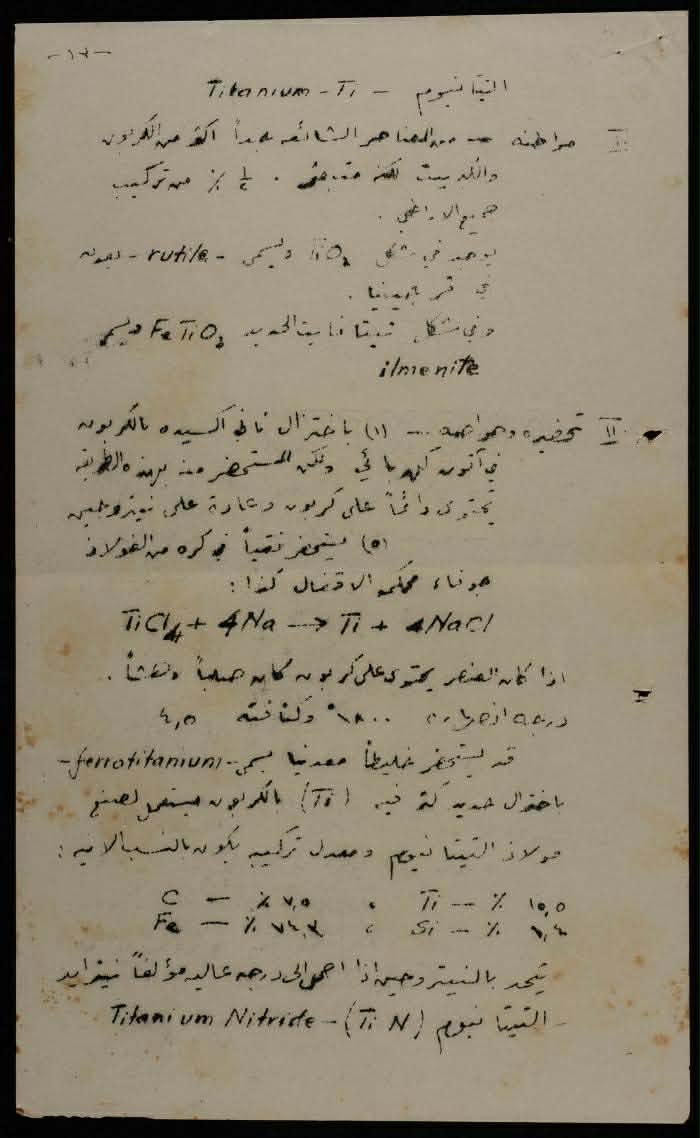 -١٣-
التيتانيوم - Titanium - Ti
I مواطنه - من العناصر الشائعه جداً اكثر من الكربون
والكبريت لكنه . ½ ٪ من تركيب
جميع الاراضي .
يوجد في شكل TiO₂ ويسمى - rutile - يعدن
في فرجينيا .
وفي شكل تيتانايت الحديد FeTiO₃ ويسمى
ilmenite
II تحضيره وخواصه - (١) باختزال ثاني اكسيده بالكربون
في آتون كهربائي ولكن المستحضر منه بهذه الطريقه
يحتوي دائماً على كربون وعادة على نيتروجين
(٢) يستحضر نقياً في كره من الفولاذ
جوفاء محكمة الاقفال كذا :
TiCl₄ + 4Na → Ti + 4NaCl
اذا كان العنصر يحتوي على كربون كان صلباً وقصفاً .
درجة انصهاره ١٨٠٠° وكثافته ٤,٥
قد يستحضر خليطاً معدنيا يسمى - ferrotitanium -
باختزال حديد كثر فيه (Ti) بالكربون يستعمل لصنع
فولاذ التيتانيوم ومعدل تركيبه يكون بالنسب الاتيه :
١٥,٥ ٪ - Ti ، ٧,٥ ٪ - C
١,٤ ٪ - Si ، ٧٤,٣ ٪ - Fe
يتحد بالنيتروجين اذا احمي الى درجه عاليه مؤلفاً نيترايد
- التيتانيوم Titanium Nitride - (TiN)